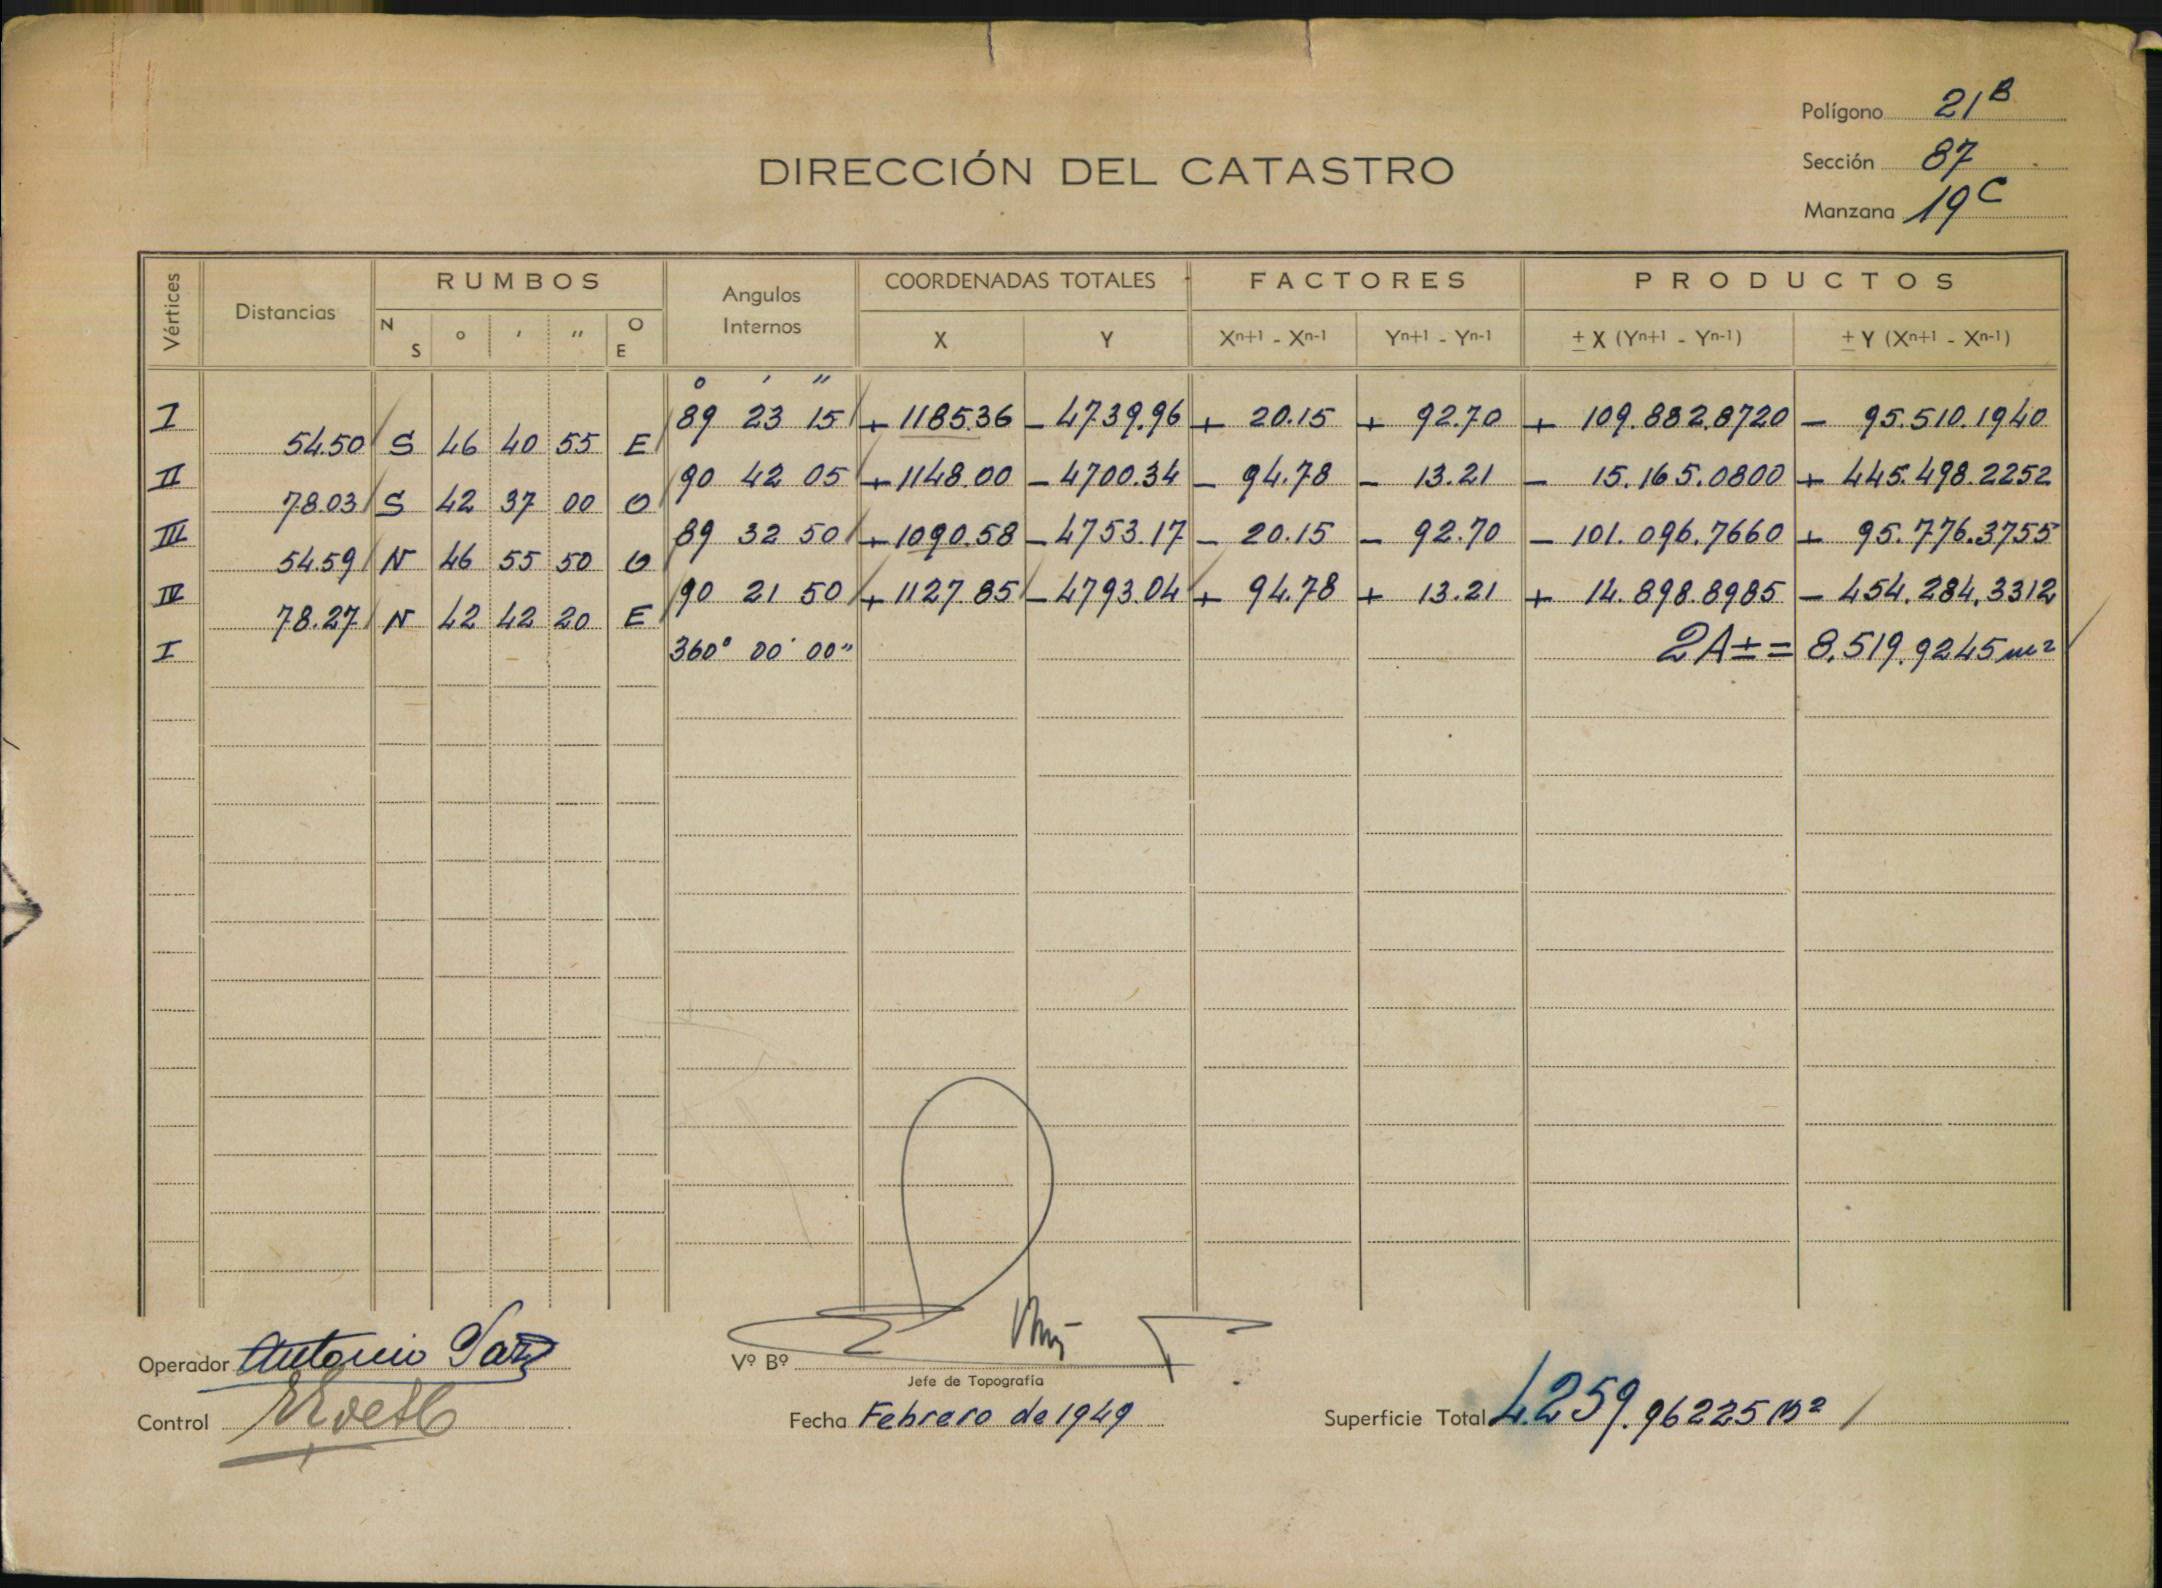 Polígono 21B
Sección 87
Manzana 19C
DIRECCIÓN DEL CATASTRO
Vértices Distancias RUMBOS Angulos Internos COORDENADAS TOTALES FACTORES PRODUCTOS
N S ° ' " O E X Y Xn+1 - Xn-1 Yn+1 - Yn-1 ± X (Yn+1 - Yn-1) ± Y (Xn+1 - Xn-1)
° ' "
I 89 23 15 + 1185.36 - 4739.96 + 20.15 + 92.70 + 109.882.8720 - 95.510.1940
54.50 S 46 40 55 E
II 90 42 05 + 1148.00 - 4700.34 - 94.78 - 13.21 - 15.165.0800 + 445.498.2252
78.03 S 42 37 00 O
III 89 32 50 + 1090.58 - 4753.17 - 20.15 - 92.70 - 101.096.7660 + 95.776.3755
54.59 N 46 55 50 O
IV 90 21 50 + 1127.85 - 4793.04 + 94.78 + 13.21 + 14.898.8985 - 454.284.3312
78.27 N 42 42 20 E
I 360° 00' 00" 2A± = 8.519.9245 m²
Operador Antonio
Vº Bº
Jefe de Topografía
Control
Fecha Febrero de 1949
Superficie Total 4.259.96225 m²